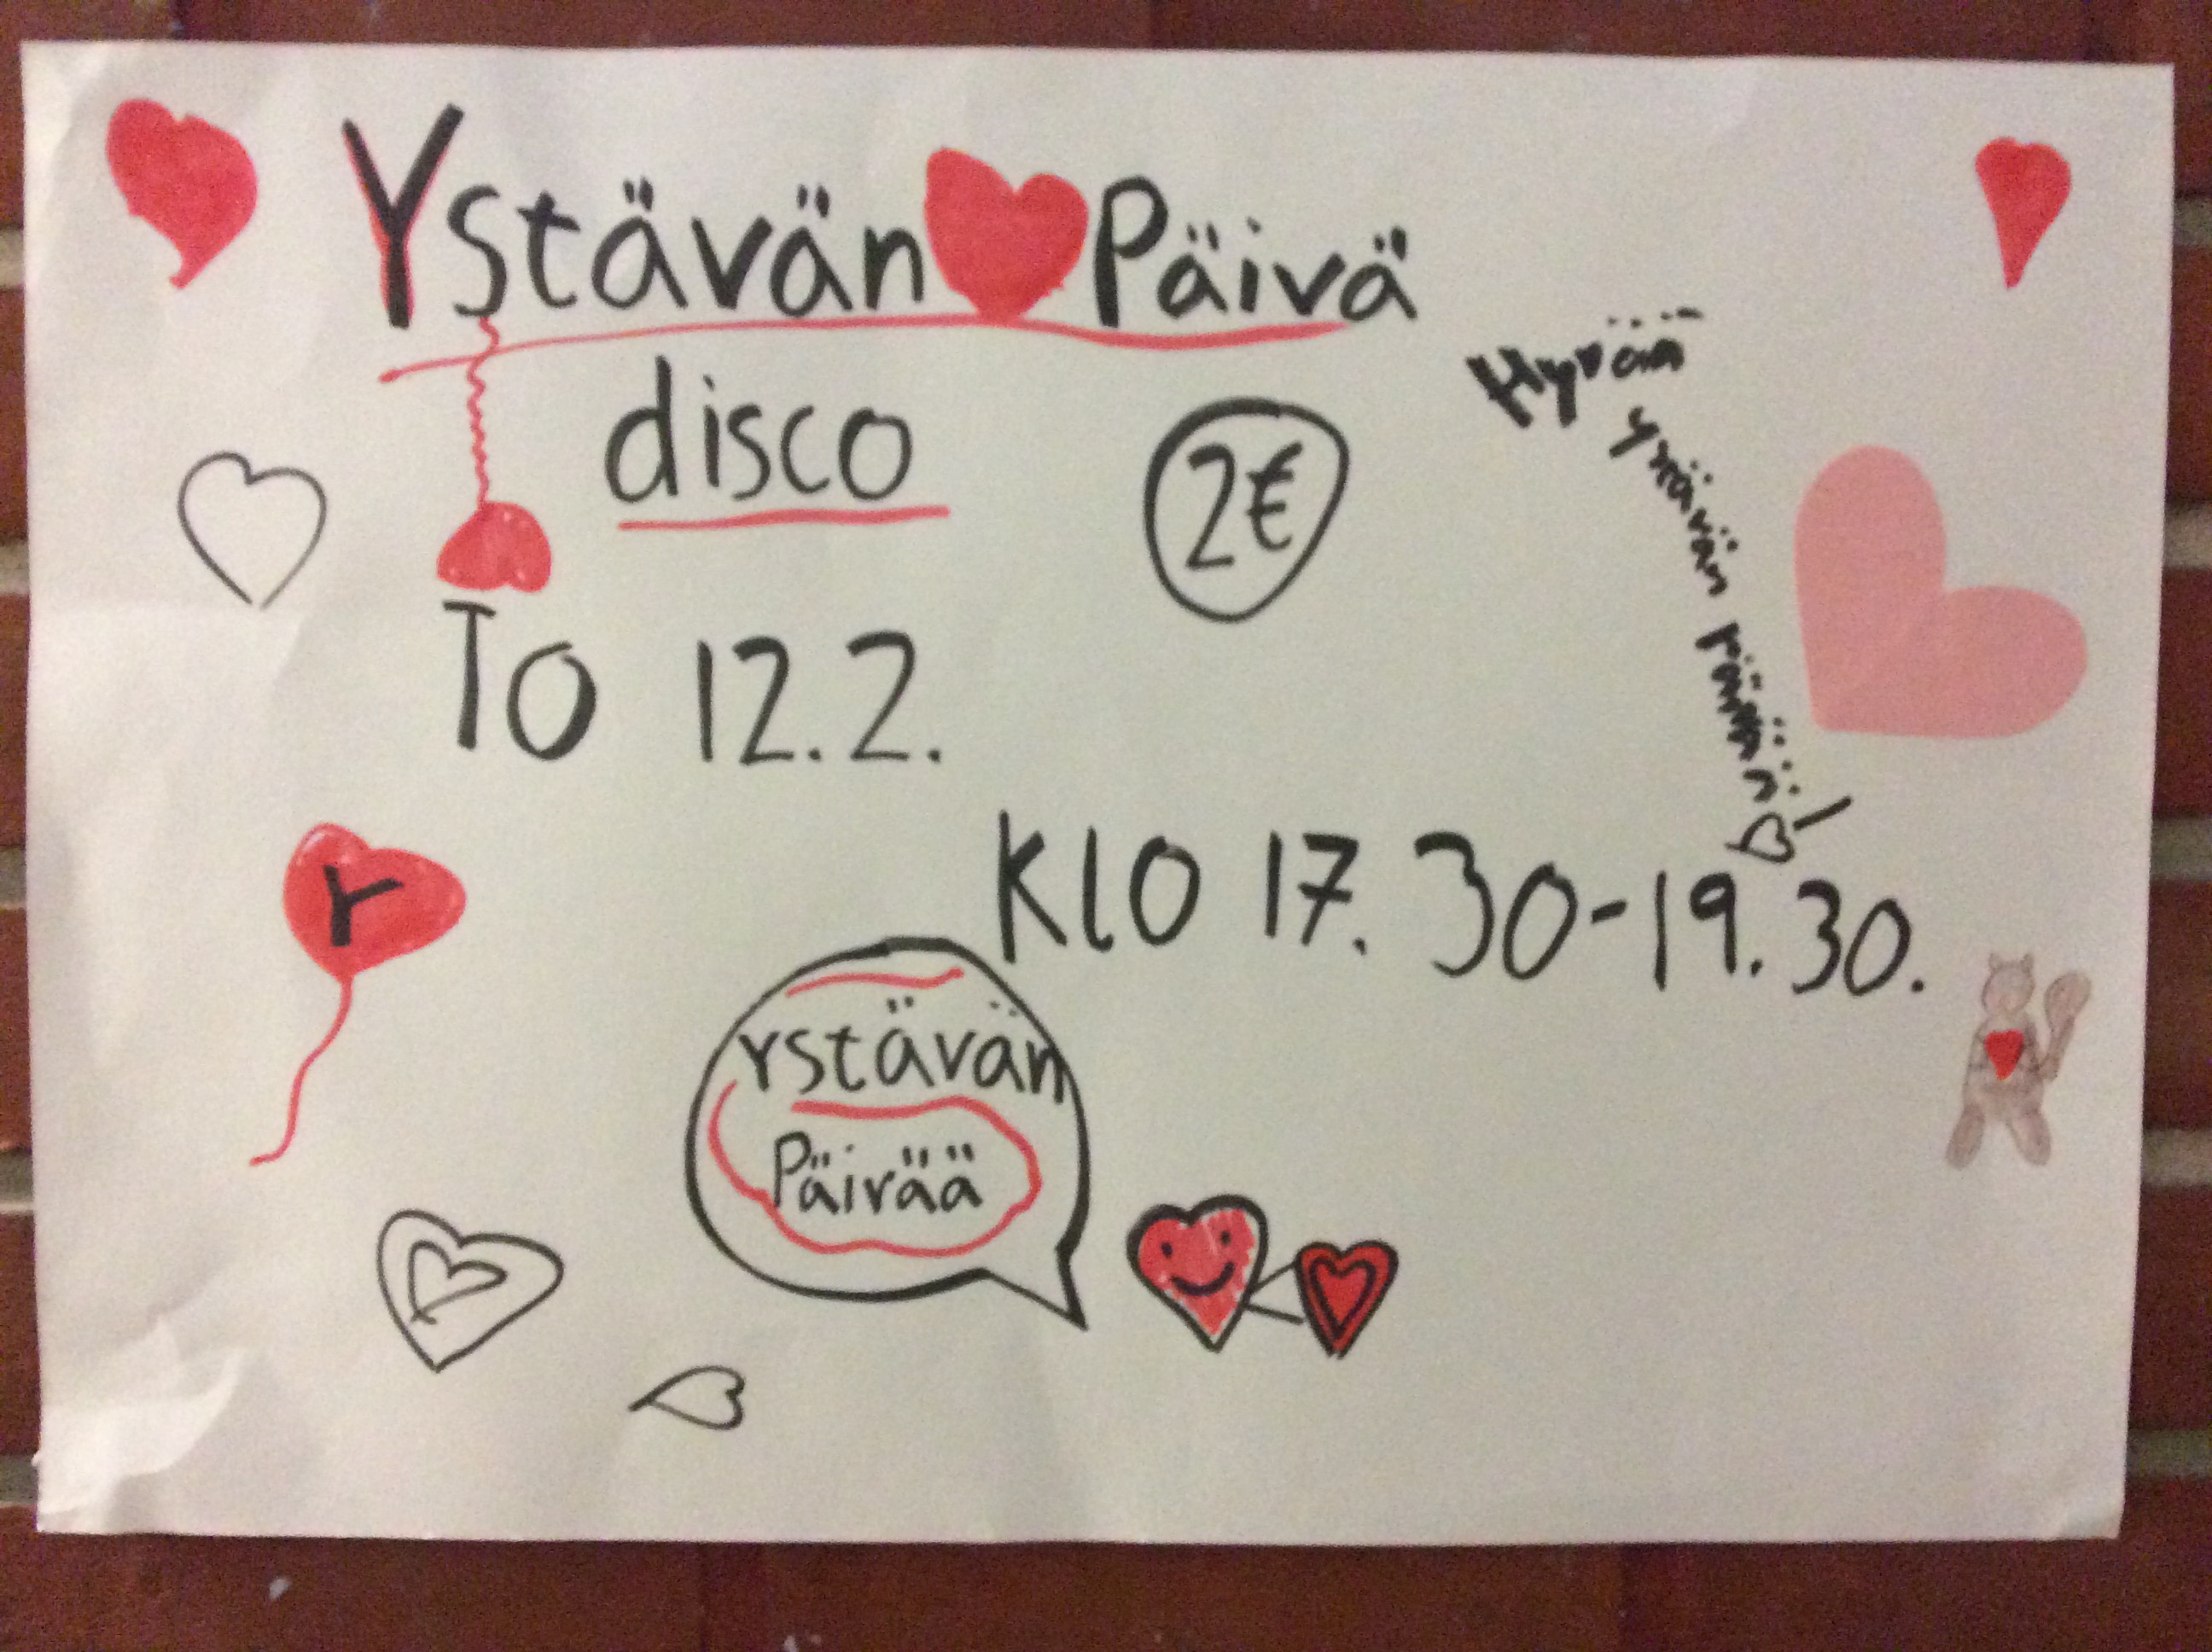 Ystävän Päivä
disco
2€
TO 12.2.
Hyvää
ystävän päivää!
Klo 17.30-19.30.
Y
ystävän
Päivää